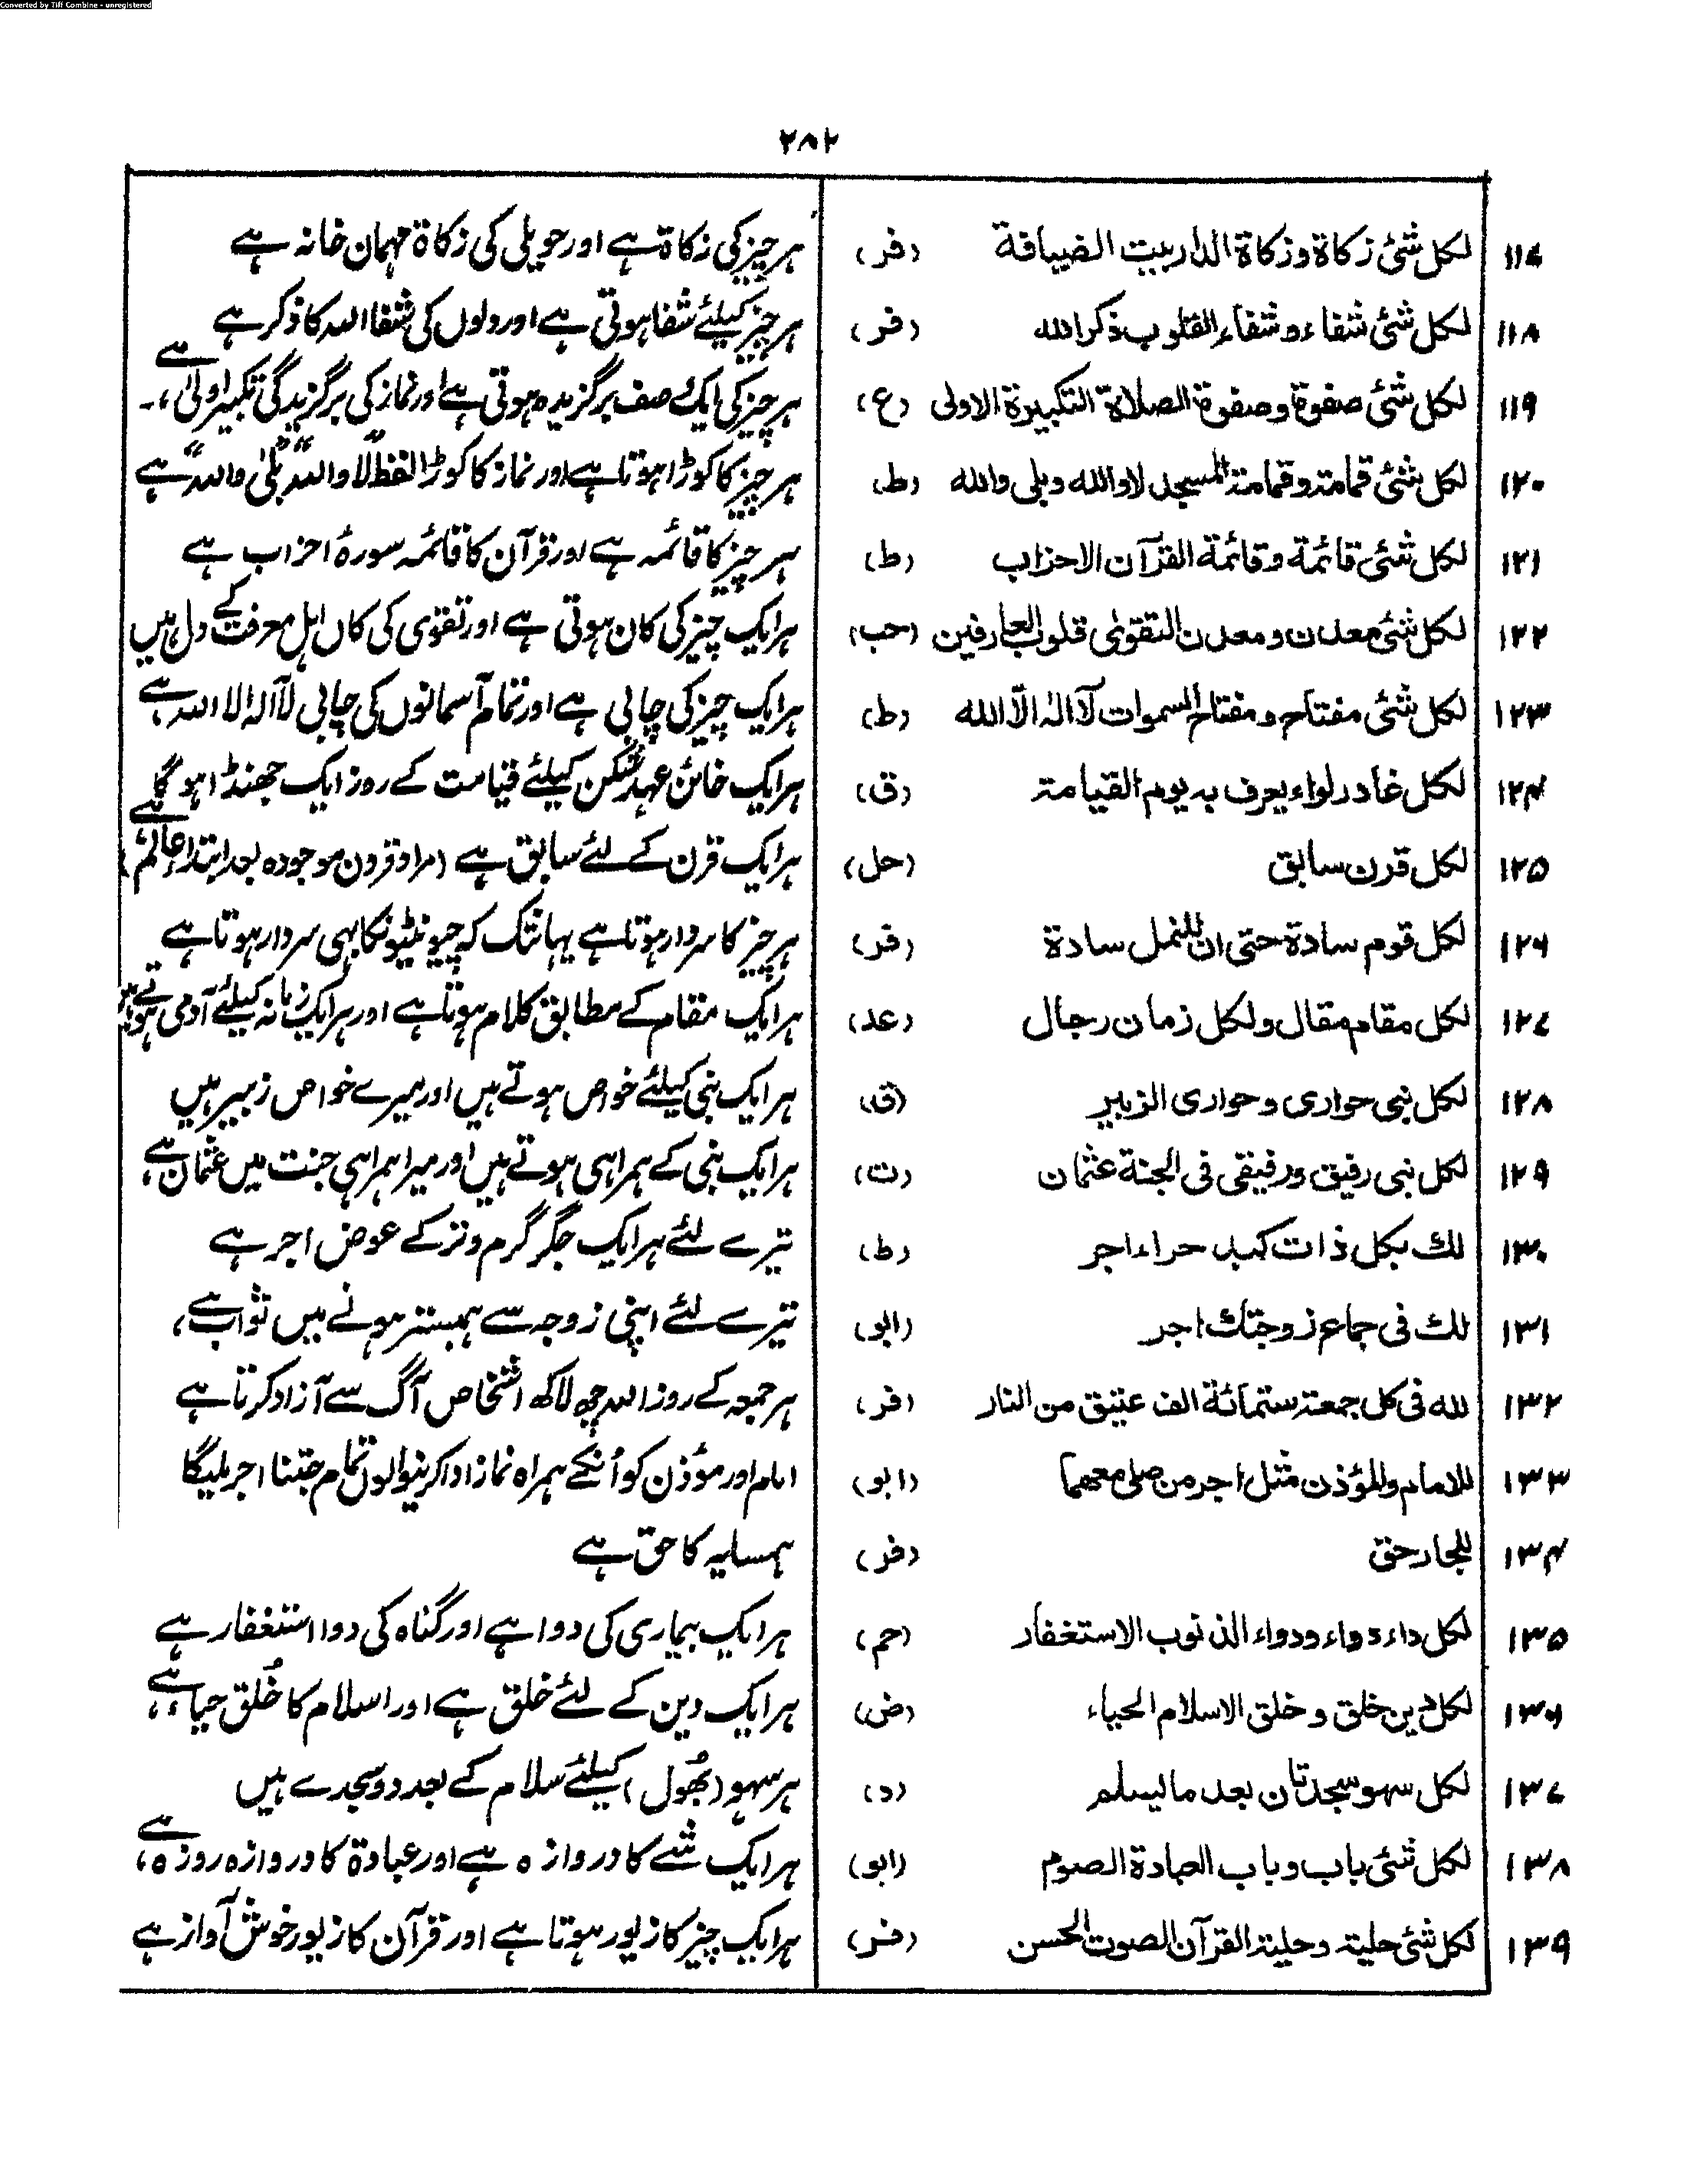 Converted by Tiff Combine - unregistered
۲۸۲
۱۱۷ لکل شئی زکاة وزکاة الدار بیت الضیافة (فر) ہر چیز کی زکاة ہے اور حویلی کی زکاة مہمان خانہ ہے
۱۱۸ لکل شئی شفاء و شفاء القلوب ذکر الله (فر) ہر چیز کیلئے شفا ہوتی ہے اور دلوں کی شفا اللہ کا ذکر ہے
۱۱۹ لکل شئی صفوة و صفوة الصلاة التکبیرة الاولی (ع) ہر چیز کی ایک صف برگزیدہ ہوتی ہے اور نماز کی برگزیدگی تکبیر اولیٰ ہے،۔
۱۲۰ لکل شئی قمامة وقمامة المسجد لا والله وبلی والله (ط) ہر چیز کا کوڑا ہوتا ہے اور نماز کا کوڑا لفظ "لا واللہ" "بلیٰ واللہ" ہے
۱۲۱ لکل شئی قائمة وقائمة القرآن الاحزاب (ط) ہر چیز کا قائمہ ہے اور قرآن کا قائمہ سورۂ احزاب ہے
۱۲۲ لکل شئی معدن ومعدن التقوای قلوب العارفین (حب) ہر ایک چیز کی کان ہوتی ہے اور تقوی کی کان اہل معرفت کے دل ہیں
۱۲۳ لکل شئی مفتاح ومفتاح السموات لآ الہ الّا الله (ط) ہر ایک چیز کی چابی ہے اور تمام آسمانوں کی چابی لآ الہ الا اللہ ہے
۱۲۴ لکل غادر لواء یعرف به یوم القیامة (ق) ہر ایک خائن عہد شکن کیلئے قیامت کے روز ایک جھنڈا ہو گا
۱۲۵ لکل قرن سابق (حل) ہر ایک قرن کے لئے سابق ہے (مراد قرون موجودہ بعد ابتداء عالم ہے)
۱۲۶ لکل قوم سادة حتی ان للنمل سادة (فر) ہر چیز کا سردار ہوتا ہے یہانتک کہ چیونٹیونکا بھی سردار ہوتا ہے
۱۲۷ لکل مقام مقال ولکل زمان رجال (عد) ہر ایک مقام کے مطابق کلام ہوتا ہے اور ہر ایک زمانہ کیلئے آدمی ہوتے ہیں
۱۲۸ لکل نبی حواری وحواری الزبیر (ق) ہر ایک نبی کیلئے خواص ہوتے ہیں اور میرے خواص زبیر ہیں
۱۲۹ لکل نبی رفیق ورفیقی فی الجنة عثمان (ت) ہر ایک نبی کے ہمراہی ہوتے ہیں اور میرا ہمراہی جنت میں عثمان ہے،
۱۳۰ لك بکل ذات کبد حراء اجر (ط) تیرے لئے ہر ایک جگر گرم وتر کے عوض اجر ہے
۱۳۱ لك فی جماع زوجتك اجر (ابو) تیرے لئے اپنی زوجہ سے ہمبستر ہونے میں ثواب ہے،
۱۳۲ لله فی کل جمعة ستمائة الف عتیق من النار (فر) ہر جمعہ کے روز اللہ چھ لاکھ اشخاص آگ سے آزاد کرتا ہے
۱۳۳ للامام والمؤذن مثل اجر من صلی معهما (ابو) امام اور مؤذن کو اُنکے ہمراہ نماز ادا کرنیوالوں تمام جتنا اجر ملیگا
۱۳۴ للجار حق (فر) ہمسایہ کا حق ہے
۱۳۵ لکل داء دواء ودواء الذنوب الاستغفار (حم) ہر ایک بیماری کی دوا ہے اور گناہ کی دوا استغفار ہے
۱۳۶ لکل دین خلق و خلق الاسلام الحیاء (ض) ہر ایک دین کے لئے خلق ہے اور اسلام کا خُلق حیاء ہے،
۱۳۷ لکل سهو سجدتان بعد ما یسلم (د) ہر سہو (بھُول) کیلئے سلام کے بعد دو سجدے ہیں
۱۳۸ لکل شئی باب وباب العبادة الصوم (ابو) ہر ایک شے کا دروازہ ہے اور عبادة کا دروازہ روزہ ہے،
۱۳۹ لکل شئی حلیة وحلیة القرآن الصوت الحسن (فر) ہر ایک چیز کا زیور ہوتا ہے اور قرآن کا زیور خوش آواز ہے